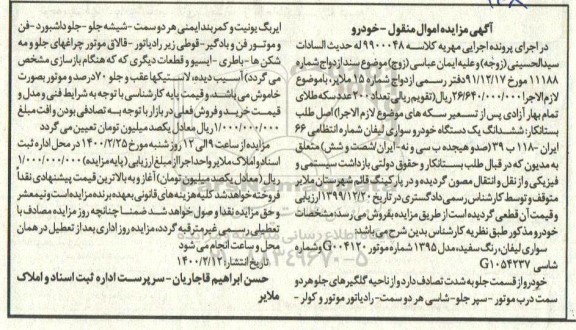 آگهی مزایده اموال منقول - خودرو
در اجرای پرونده اجرایی مهریه کلاسه ۹۹۰۰۰۴۸ له حدیث السادات
سیدالحسینی (زوجه) و علیه ایمان عباسی (زوج) موضوع سند ازدواج شماره
۱۱۱۸۸ مورخ ۹۱/۱۲/۱۷ دفتر رسمی ازدواج شماره ۱۵ ملایر، باموضوع
لازم الاجرا ۲۶/۶۴۰/۰۰۰/۰۰۰ ریال (تقویم ریالی تعداد ۲۰۰ عدد سکه طلای
تمام بهار آزادی پس از تسعیر سکه های موضوع لازم الاجرا) اصل طلب
بستانکار: ششدانگ یک دستگاه خودرو سواری لیفان شماره انتظامی ۶۶
ایران - ۱۱۸ ب ۳۹ (صد و هیجده ب سی و نه - ایران شصت و شش) متعلق
به مدیون که در قبال طلب بستانکار و حقوق دولتی بازداشت سیستمی و
فیزیکی و از نقل و انتقال مصون گردیده و در پارکینگ قائم شهرستان ملایر
متوقف و توسط کارشناس رسمی دادگستری در تاریخ ۱۳۹۹/۱۲/۲۰ ارزیابی
و قیمت آن قطعی گردیده است از طریق مزایده بفروش می رسد، مشخصات
خودرو مذکور طبق نظریه کارشناس بدین شرح می باشد
سواری لیفان، رنگ سفید، مدل ۱۳۹۵ شماره موتور G۰۰۴۱۲۰ و شماره
شاسی G۱۰۵۴۲۳۷
خودرو از قسمت جلو به شدت تصادف دارد و از ناحیه گلگیرهای جلو هر دو
سمت درب موتور - سپر جلو - شاسی هر دو سمت - رادیاتور موتور و کولر -
ایربگ یونیت و کمربند ایمنی هر دو سمت - شیشه جلو - جلو داشبورد - فن
و موتور فن و بادگیر - قوطی زیر رادیاتور - قالاق موتور چراغهای جلو و مه
شکن ها - باطری - ایسیو و قطعات دیگری که که هنگام بازسازی مشخص
می گردد) آسیب دیده، لاستیکها عقب و جلو ۷۰ درصد و موتور بصورت
خاموش می باشد. و قیمت پایه کارشناسی با توجه به شرایط فنی و مدل و
قیمت خرید و فروش فعلی در بازار با توجه به تصادفی بودن و افت مبلغ
۱/۰۰۰/۰۰۰/۰۰۰ ریال معادل یکصد میلیون تومان تعیین می گردد
مزایده از ساعت ۹ الی ۱۲ روز شنبه مورخ ۱۴۰۰/۲/۲۵ در محل اداره ثبت
اسناد و املاک ملایر واحد اجرا از مبلغ ارزیابی (پایه مزایده) ۱/۰۰۰/۰۰۰/۰۰۰
ریال (معادل یکصد میلیون تومان) آغاز و به بالاترین قیمت پیشنهادی نقدا
فروخته خواهد شد کلیه هزینه های قانونی بعهده برنده مزایده است و نیمعشر
و حق مزایده نقدا وصول خواهد شد ضمنا چنانچه روز مزایده مصادف با
تعطیلی رسمی غیرمترقبه گردد، مزایده روز اداری بعد از تعطیل در همان
محل و ساعت انجام می شود
تاریخ انتشار: ۱۴۰۰/۲/۱۲
حسن ابراهیم قاجاریان - سرپرست اداره ثبت اسناد و املاک
ملایر